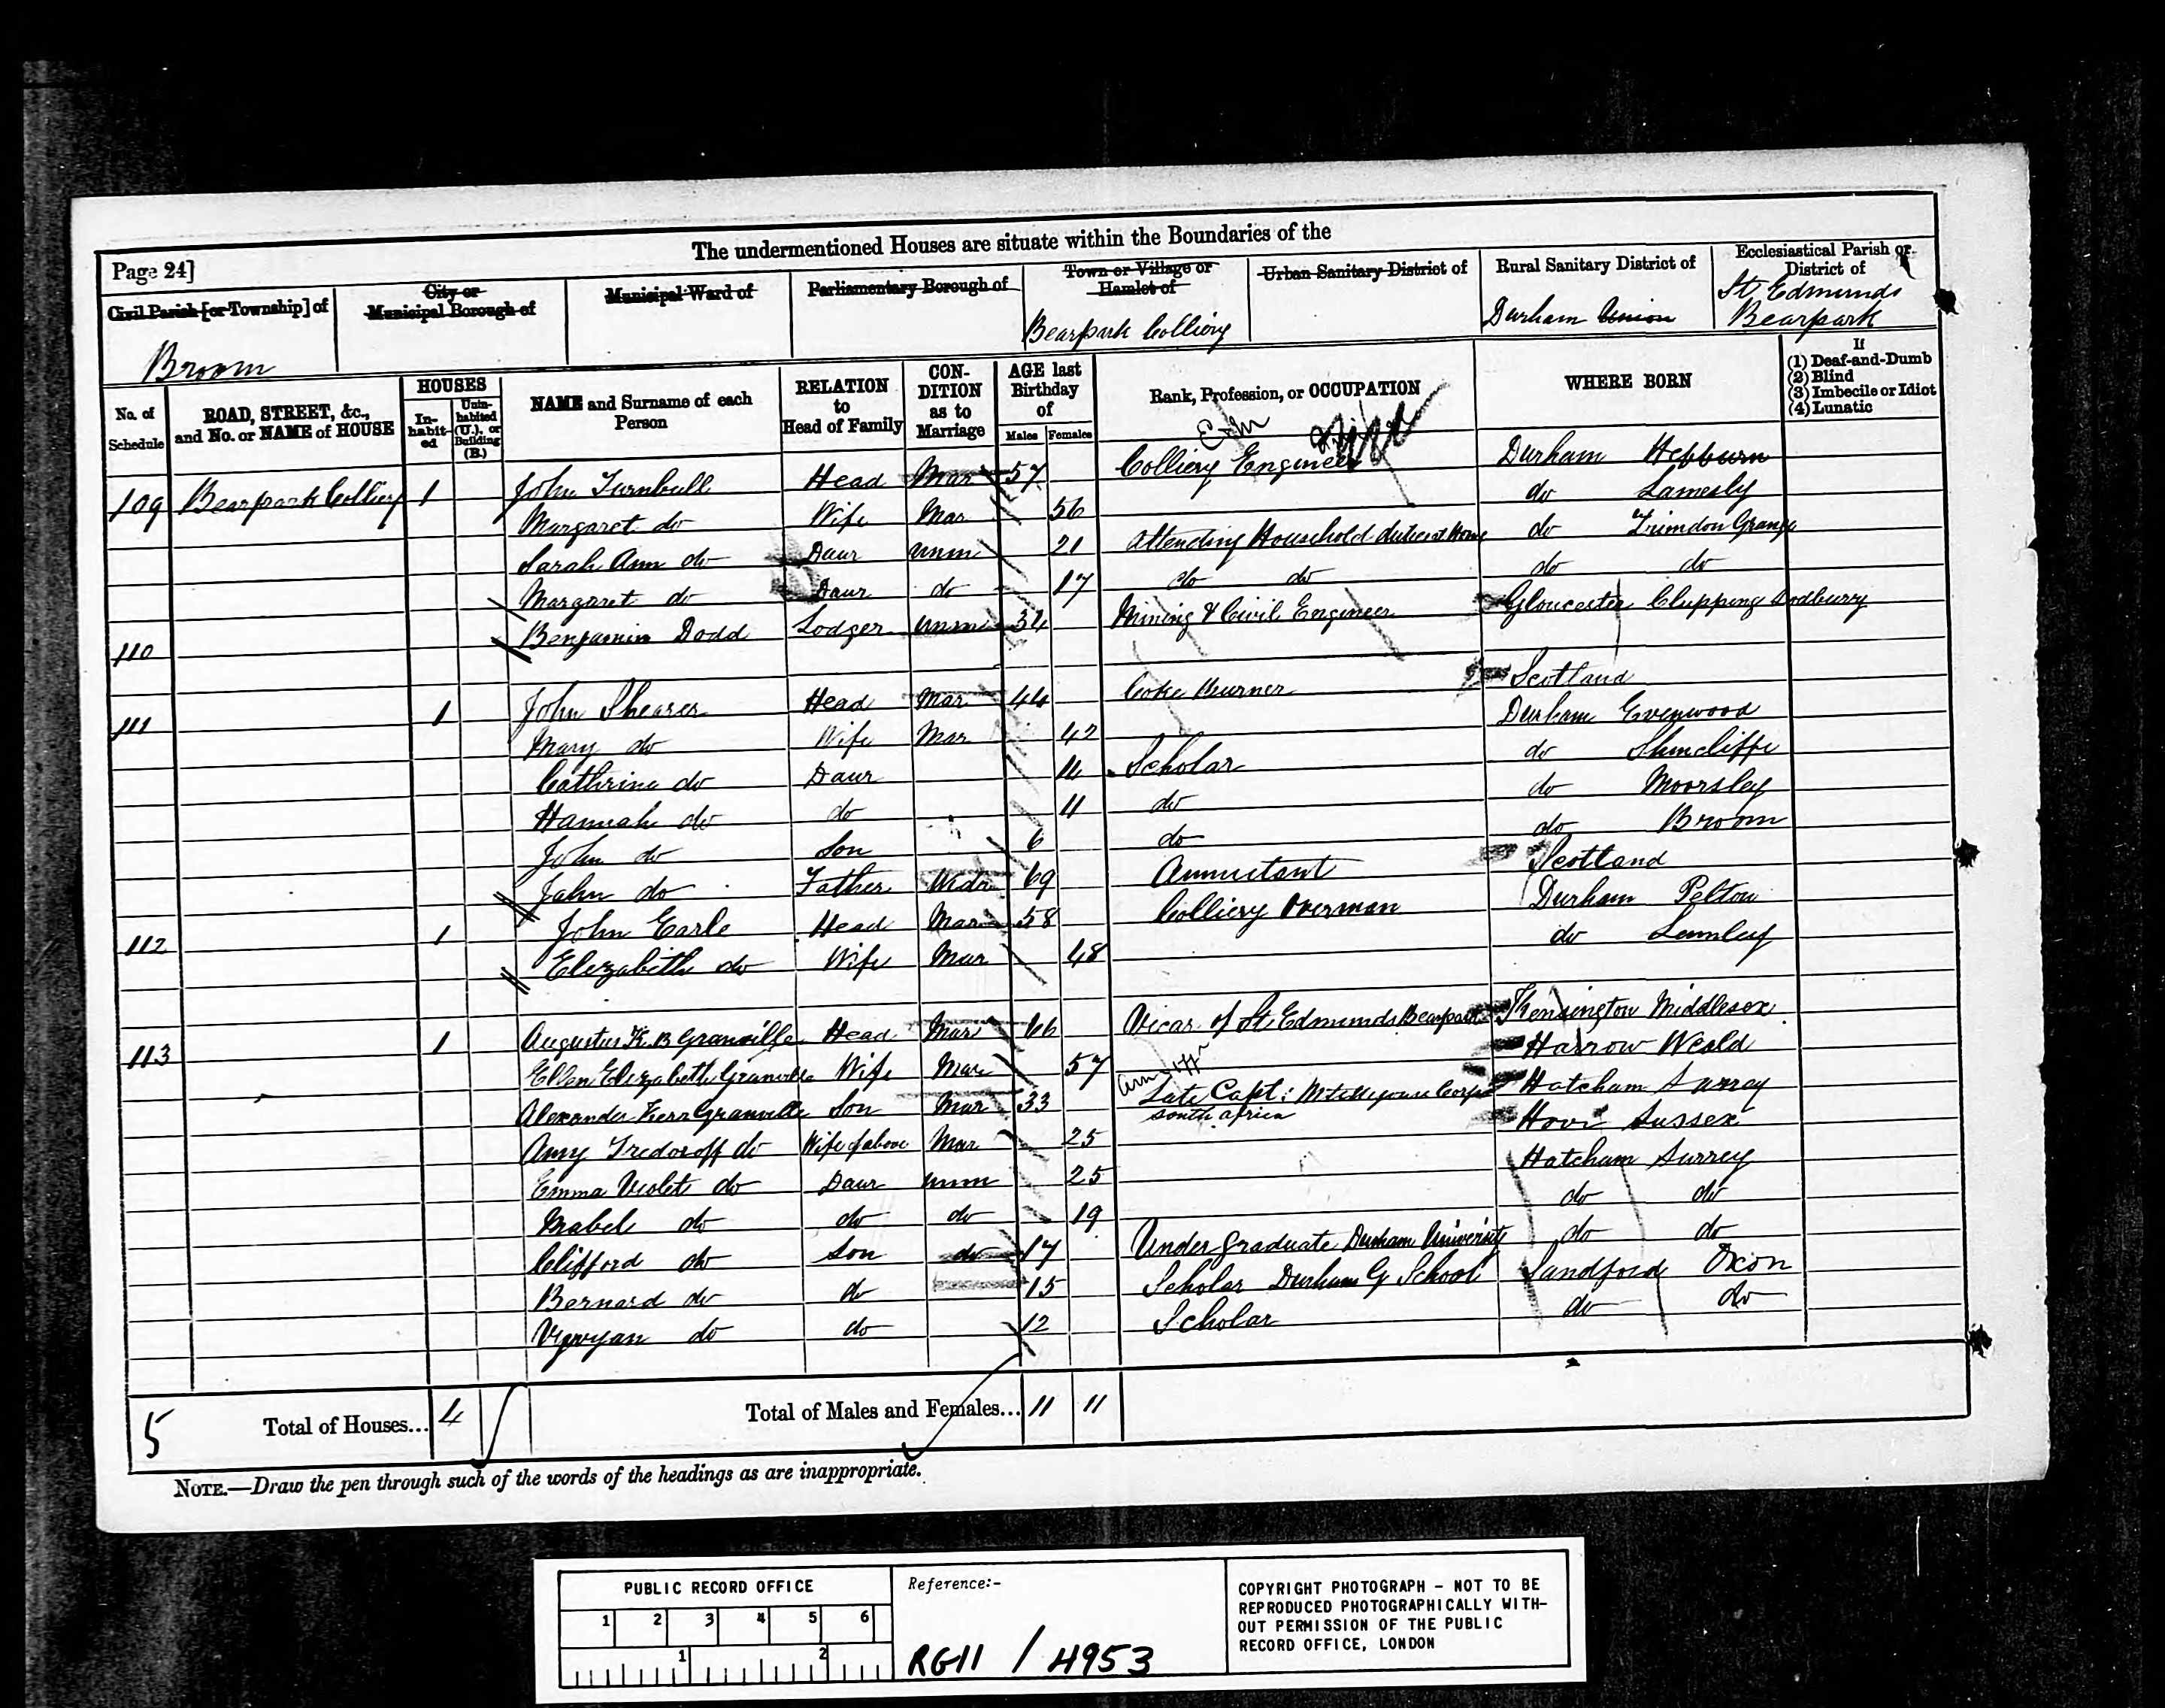 The undermentioned Houses are situate within the Boundaries of the
Page 24]
Civil Parish [or Township] of
City or Municipal Borough of
Municipal Ward of
Parliamentary Borough of
Town or Village or Hamlet of
Urban Sanitary District of
Rural Sanitary District of
Ecclesiastical Parish or District of
Broom
Bearpark Colliery
Durham Union
St Edmunds Bearpark
No. of Schedule
ROAD, STREET, &c., and No. or NAME of HOUSE
HOUSES
In-habit-ed
Unin-habited (U.), or Building (B.)
NAME and Surname of each Person
RELATION to Head of Family
CON-DITION as to Marriage
AGE last Birthday of
Males Females
Rank, Profession, or OCCUPATION
WHERE BORN
If
(1) Deaf-and-Dumb
(2) Blind
(3) Imbecile or Idiot
(4) Lunatic
109 Bearpark Colliery 1 John Turnbull Head Mar 57 Colliery Engineer Durham Hebburn
Margaret do Wife Mar 56 do Lamesly
Sarah Ann do Daur Unm 21 Attending Household duties at Home do Trimdon Grange
Margaret do Daur do 17 do do do do
110 Benjamin Dodd Lodger Unm 34 Mining & Civil Engineer Gloucester Chipping Sodbury
111 1 John Shearer Head Mar 44 Coke Burner Scotland
Mary do Wife Mar 42 Durham Evenwood
Cathrine do Daur 14 Scholar do Shincliffe
Hannah do do 11 do do Moorsley
John do Son 6 do do Broom
John do Father Widr 69 Annuitant Scotland
112 1 John Earle Head Mar 58 Colliery Overman Durham Pelton
Elezabeth do Wife Mar 48 do Lumley
113 1 Augustus K. B Granville Head Mar 66 Vicar of St Edmunds Bearpark Kensington Middlesex
Ellen Elezabeth Granville Wife Mar 57 Harrow Weald
Alexander Kerr Granville Son Mar 33 Late Capt: Corps South Africa Hatcham Surrey
Amy do Wife of above Mar 25 Hove Sussex
Emma Violet do Daur Unm 25 Hatcham Surrey
Mabel do do do 19 do do
Clifford do Son do 17 Under graduate Durham University do do
Bernard do do 15 Scholar Durham G School Sandford Oxon
Vyvyan do do 12 Scholar do do
5 Total of Houses... 4 Total of Males and Females... 11 11
NOTE.—Draw the pen through such of the words of the headings as are inappropriate.
PUBLIC RECORD OFFICE
1 2 3 4 5 6
1 2
Reference:-
RG11 / 4953
COPYRIGHT PHOTOGRAPH - NOT TO BE
REPRODUCED PHOTOGRAPHICALLY WITH-
OUT PERMISSION OF THE PUBLIC
RECORD OFFICE, LONDON